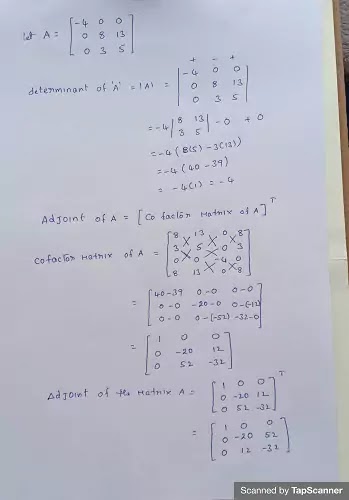 let A = [ -4 0 0
0 8 13
0 3 5 ]
+ - +
determinant of 'A' = |A| = | -4 0 0
0 8 13
0 3 5 |
= -4 | 8 13
3 5 | - 0 + 0
= -4 ( 8(5) - 3(13) )
= -4 ( 40 - 39 )
= -4(1) = -4
Adjoint of A = [ Cofactor Matrix of A ]^T
Cofactor Matrix of A = [ 8 13 0 8
3 5 0 3
0 0 -4 0
8 13 0 8 ]
= [ 40-39 0-0 0-0
0-0 -20-0 0-(-12)
0-0 0-(-52) -32-0 ]
= [ 1 0 0
0 -20 12
0 52 -32 ]
Adjoint of the Matrix A = [ 1 0 0
0 -20 12
0 52 -32 ]^T
= [ 1 0 0
0 -20 52
0 12 -32 ]
Scanned by TapScanner